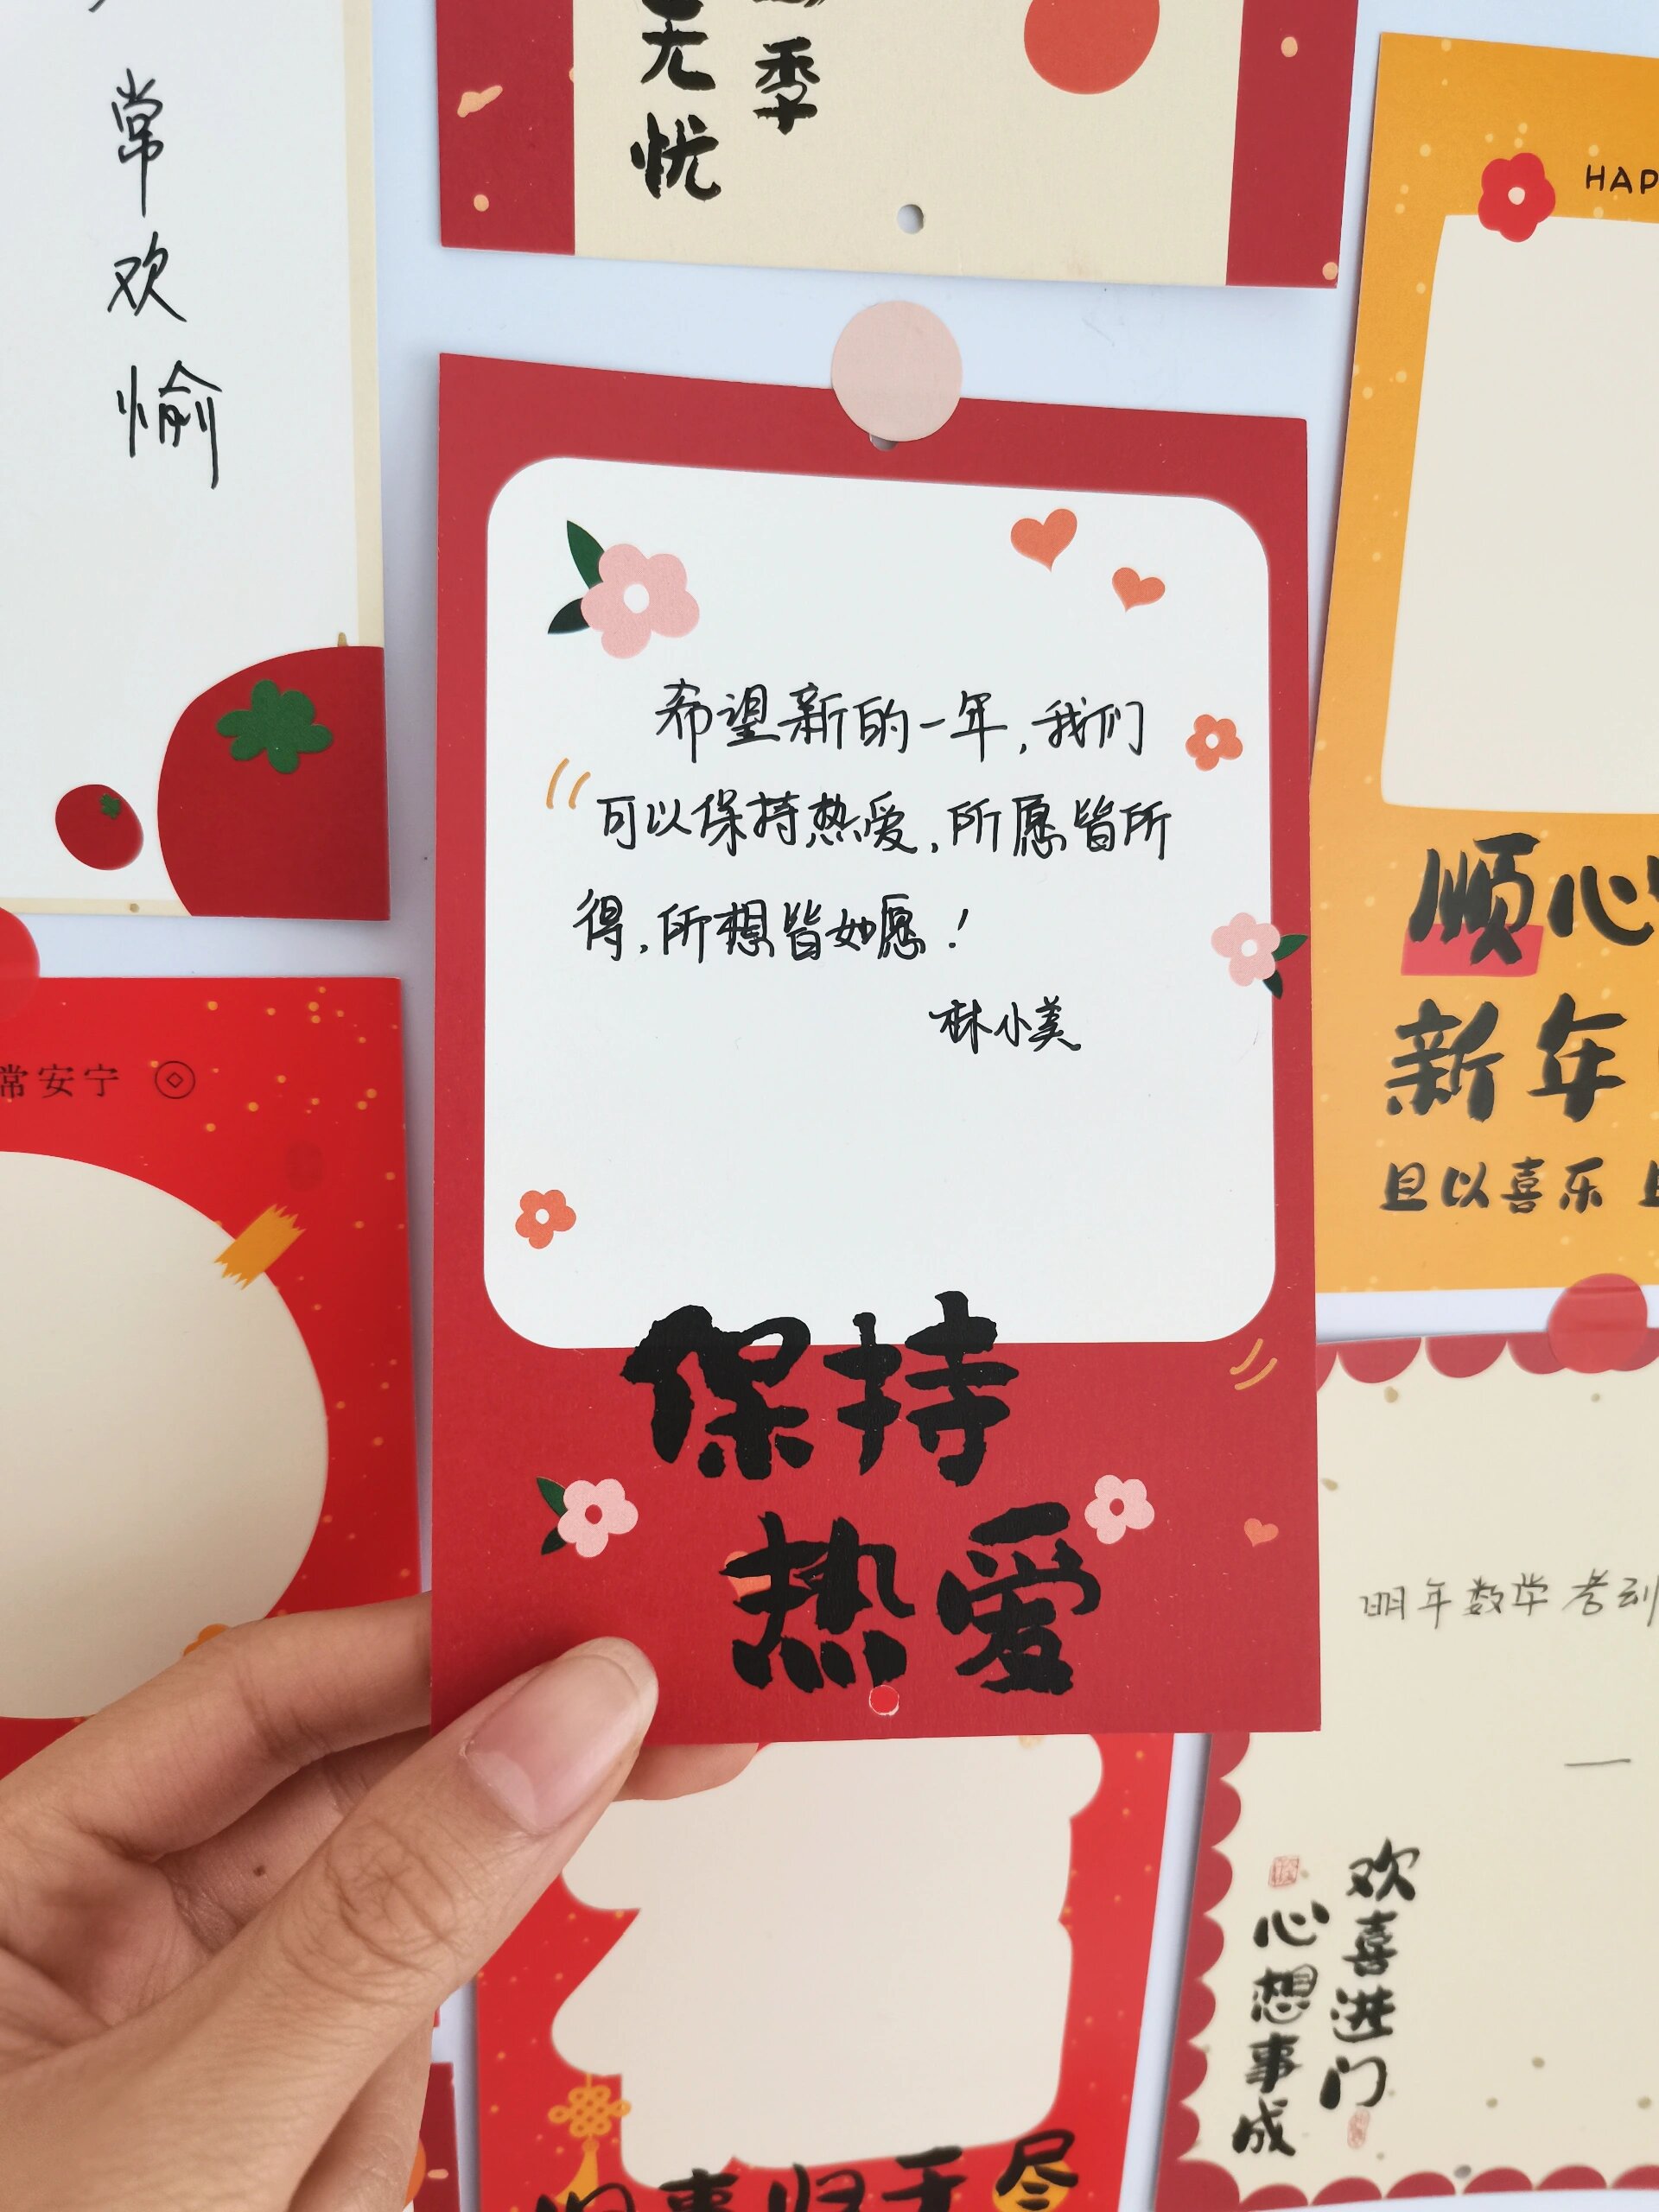 常
欢
愉
季
无忧
HAP
希望新的一年,我们
可以保持热爱,所愿皆所
得,所想皆如愿!
林小美
保持
热爱
顺心
新年
且以喜乐 且
常安宁
明年数学考到
一
欢喜进门
心想事成
旧事归于尽